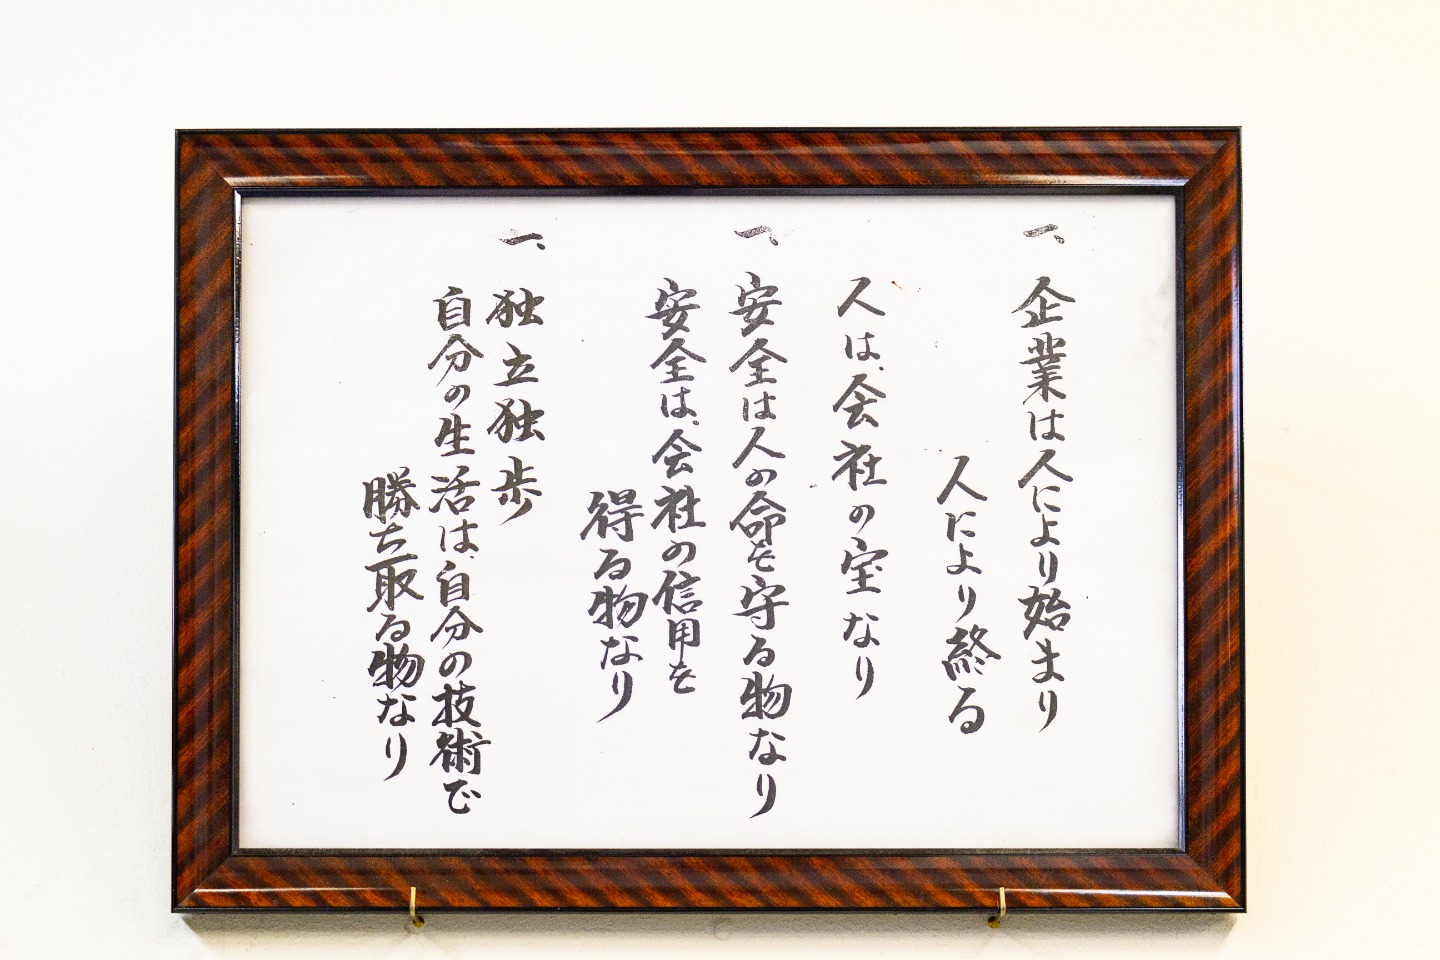 一、企業は人により始まり
人により終る
人は、会社の宝なり
一、安全は人の命を守る物なり
安全は、会社の信用を
得る物なり
一、独立独歩
自分の生活は、自分の技術で
勝ち取る物なり